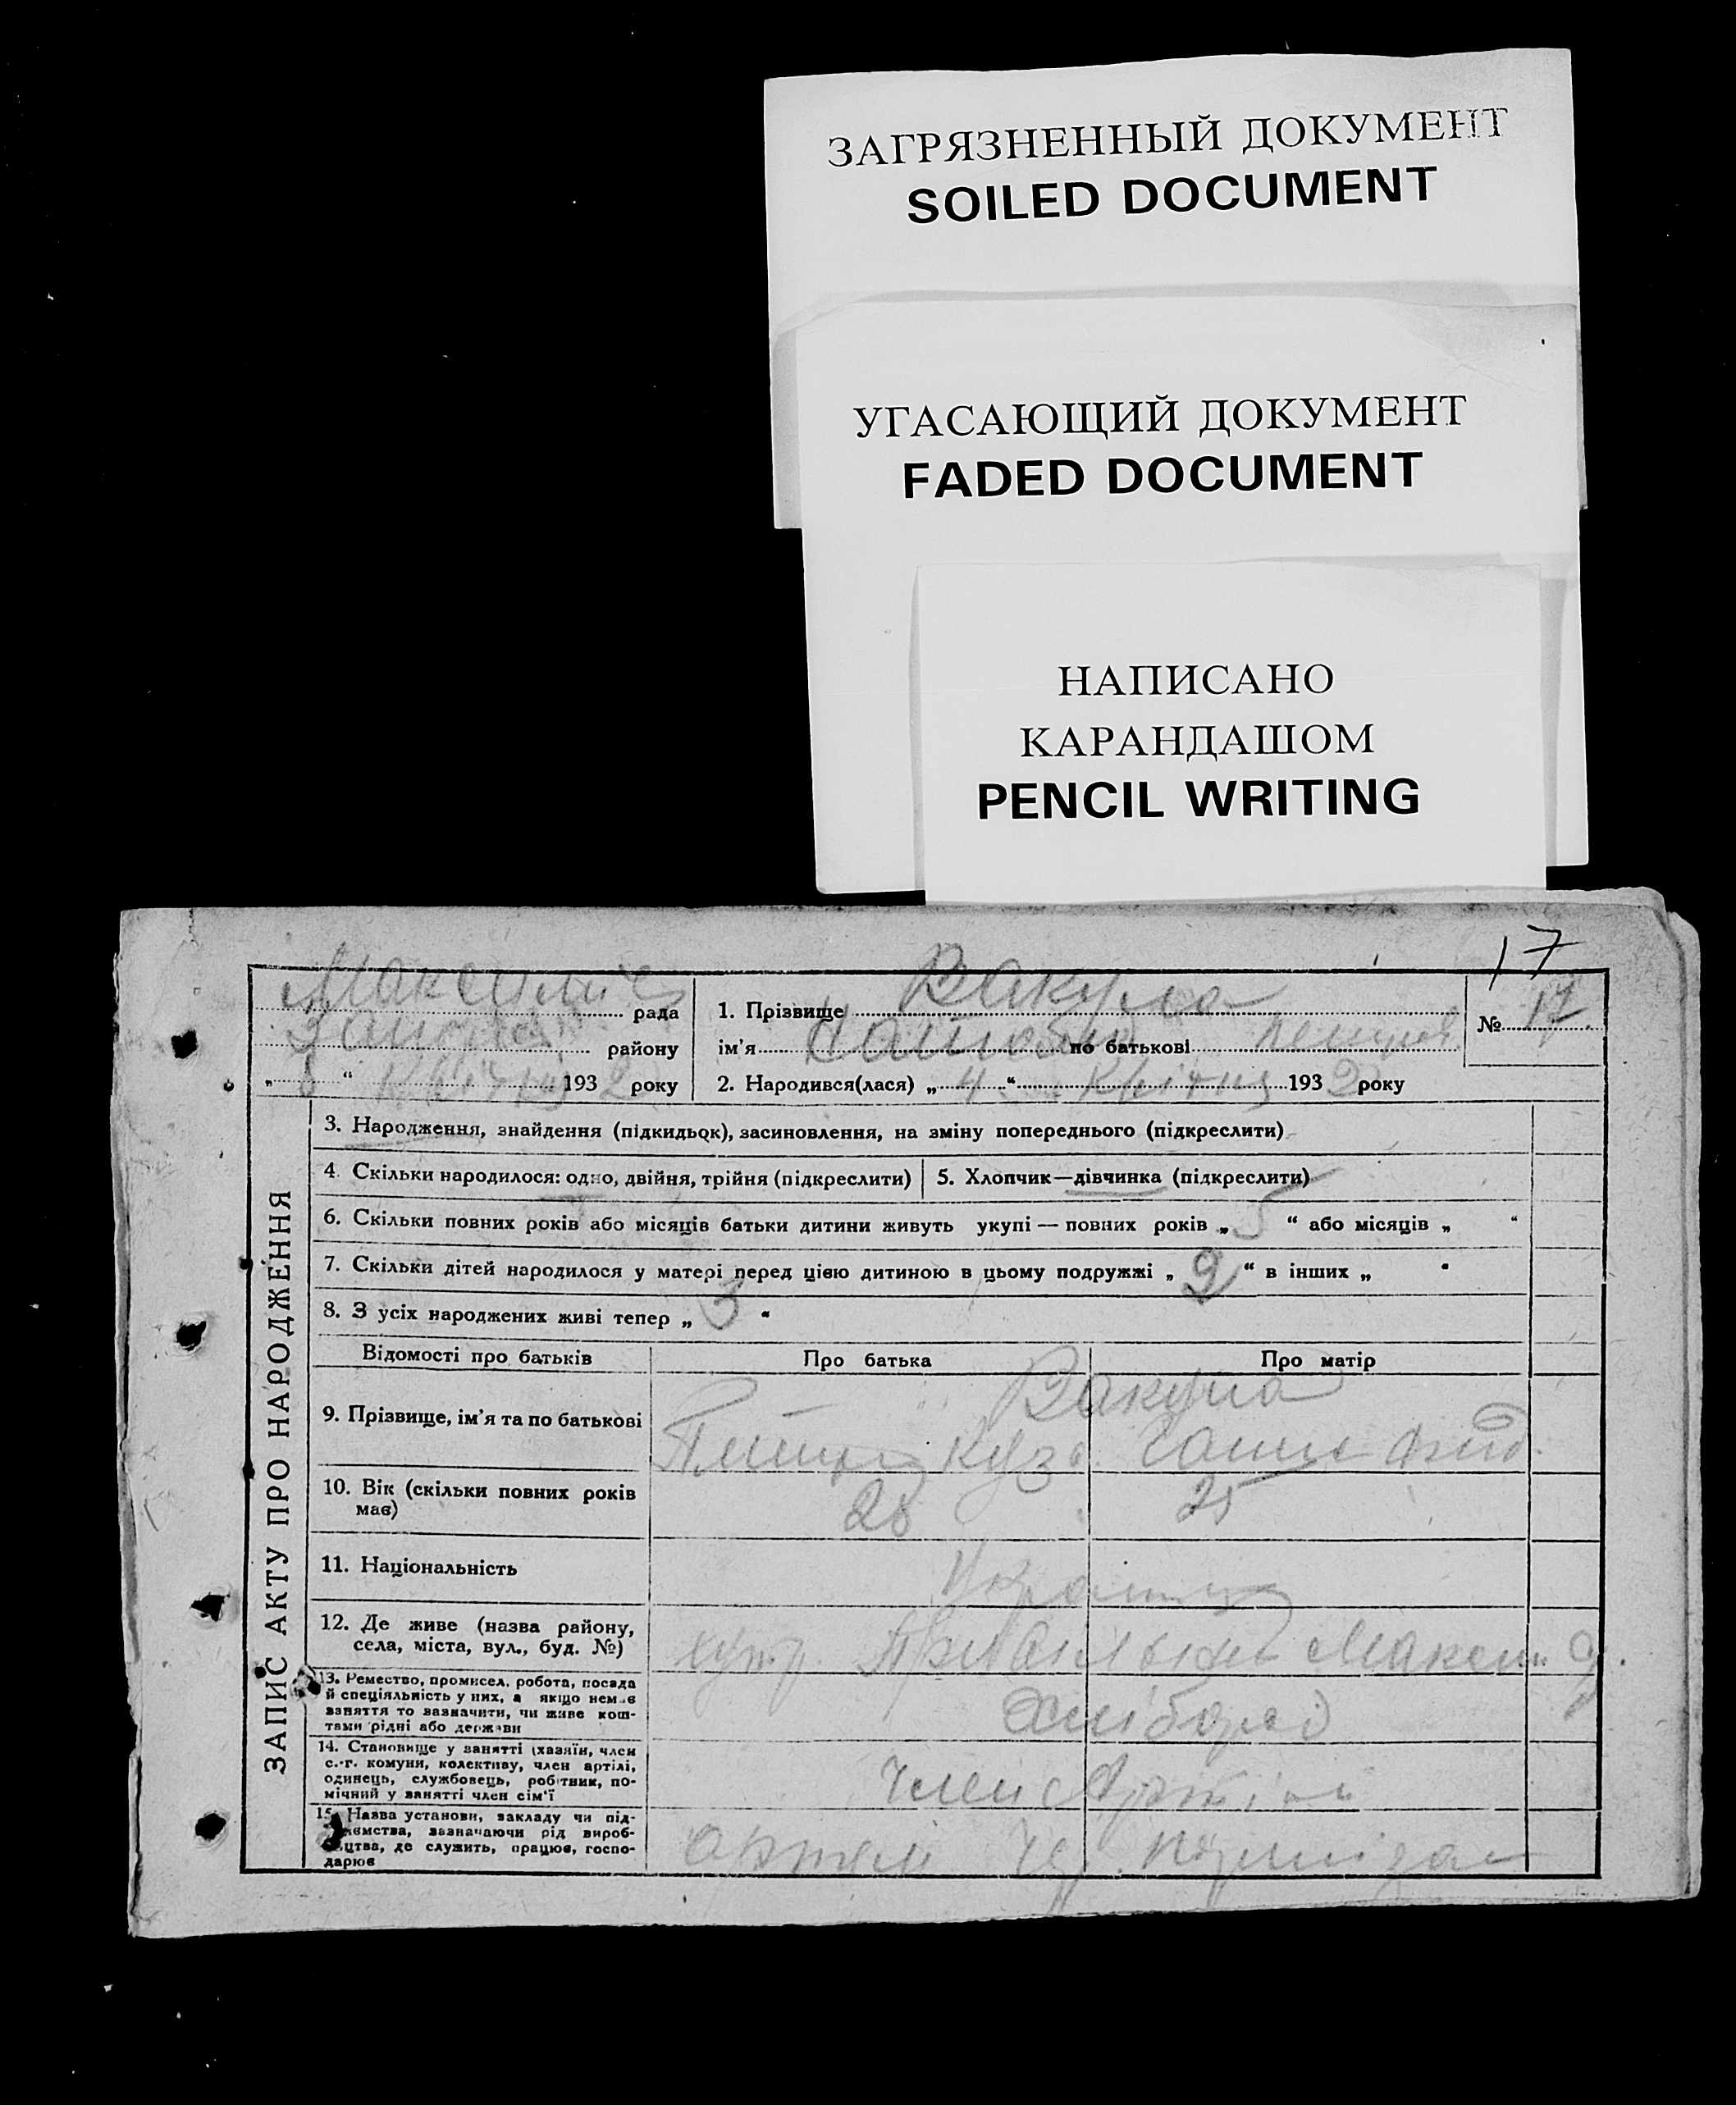 ЗАГРЯЗНЕННЫЙ ДОКУМЕНТ
SOILED DOCUMENT
УГАСАЮЩИЙ ДОКУМЕНТ
FADED DOCUMENT
НАПИСАНО
КАРАНДАШОМ
PENCIL WRITING
17
рада
району
„ “ Квітня 193 2 року
1. Прізвище Вакула
ім’я по батькові
2. Народився(лася) „ 4 “ Квітня 193 2 року
№ 17
ЗАПИС АКТУ ПРО НАРОДЖЕННЯ
3. Народження, знайдення (підкидьок), засиновлення, на зміну попереднього (підкреслити)
4. Скільки народилося: одно, двійня, трійня (підкреслити)
5. Хлопчик—дівчинка (підкреслити)
6. Скільки повних років або місяців батьки дитини живуть укупі — повних років „ 5 “ або місяців „ “
7. Скільки дітей народилося у матері перед цією дитиною в цьому подружжі „ 2 “ в інших „ “
8. З усіх народжених живі тепер „ 3 “
Відомості про батьків
Про батька
Про матір
9. Прізвище, ім’я та по батькові
Вакула
10. Вік (скільки повних років
має)
28
25
11. Національність
12. Де живе (назва району,
села, міста, вул., буд. №)
хут.
13. Ремество, промисел, робота, посада
й спеціяльність у них, а якщо немає
заняття то зазначити, чи живе кош-
тами рідні або держави
Хлібороб
14. Становище у занятті (хазяїн, член
с.-г. комуни, колективу, член артілі,
одинець, службовець, робітник, по-
мічний у занятті член сім’ї
член Артілі
15. Назва установи, закладу чи під-
ємства, зазначаючи рід вироб-
цтва, де служить, працює, госпо-
дарює